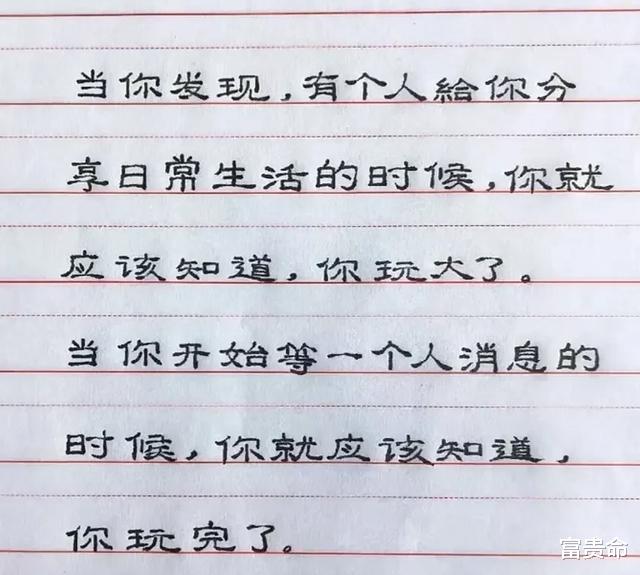 当你发现，有个人給你分
享日常生活的时候，你就
应该知道，你玩大了。
当你开始等一个人消息的
时候，你就应该知道，
你玩完了。
富贵命